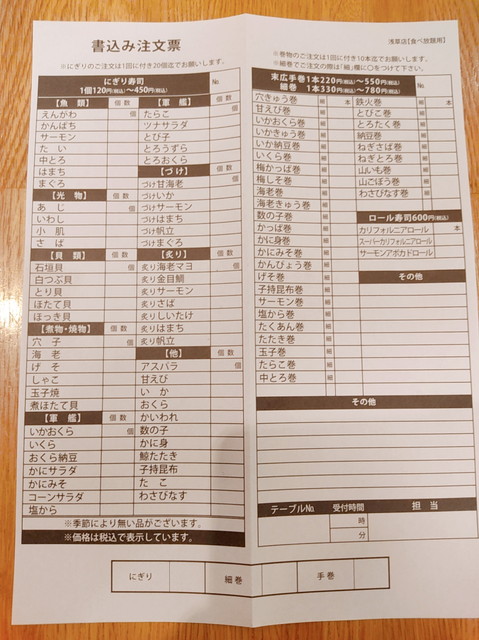 書込み注文票
※にぎりのご注文は1回に付き20個迄でお願いします。
にぎり寿司
1個120円(税込)〜450円(税込)
№
【魚類】 個数
えんがわ 個
かんぱち
サーモン
たい
中とろ
はまち
まぐろ
【光物】 個数
あじ 個
いわし
小肌
さば
【貝類】 個数
石垣貝 個
白つぶ貝
とり貝
ほたて貝
ほっき貝
【煮物・焼物】 個数
穴子 個
海老
げそ
しゃこ
玉子焼
煮ほたて貝
【軍艦】 個数
いかおくら 個
いくら
おくら納豆
かにサラダ
かにみそ
コーンサラダ
塩から
【軍艦】 個数
たらこ 個
ツナサラダ
とび子
とろうずら
とろおくら
【づけ】 個数
づけ甘海老 個
づけいか
づけサーモン
づけはまち
づけ帆立
づけまぐろ
【炙り】 個数
炙り海老マヨ 個
炙り金目鯛
炙りサーモン
炙りさば
炙りしいたけ
炙りはまち
炙り帆立
【他】 個数
アスパラ 個
甘えび
いか
おくら
かいわれ
数の子
かに身
鯨たたき
子持昆布
たこ
わさびなす
※季節により無い品がございます。
※価格は税込で表示しています。
浅草店【食べ放題用】
※巻物のご注文は1回に付き10本迄でお願いします。
※細巻でご注文の際は「細」欄に○をつけて下さい。
末広手巻1本220円(税込)〜550円(税込)
細巻 1本330円(税込)〜780円(税込)
№
穴きゅう巻 細 本
甘えび巻 細
いかおくら巻 細
いかきゅう巻 細
いか納豆巻 細
いくら巻 細
梅かっぱ巻 細
梅しそ巻 細
海老巻 細
海老きゅう巻 細
数の子巻 細
かっぱ巻 細
かに身巻 細
かにみそ巻 細
かんぴょう巻 細
げそ巻 細
子持昆布巻 細
サーモン巻 細
塩から巻 細
たくあん巻 細
たたき巻 細
玉子巻 細
たらこ巻 細
中とろ巻 細
鉄火巻 細 本
とびこ巻 細
とろたく巻 細
納豆巻 細
ねぎさば巻 細
ねぎとろ巻 細
山いも巻 細
山ごぼう巻 細
わさびなす巻 細
ロール寿司600円(税込)
カリフォルニアロール 本
スーパーカリフォルニアロール
サーモンアボカドロール
その他
その他
テーブル№ 受付時間 担当
時
分
にぎり 細巻 手巻